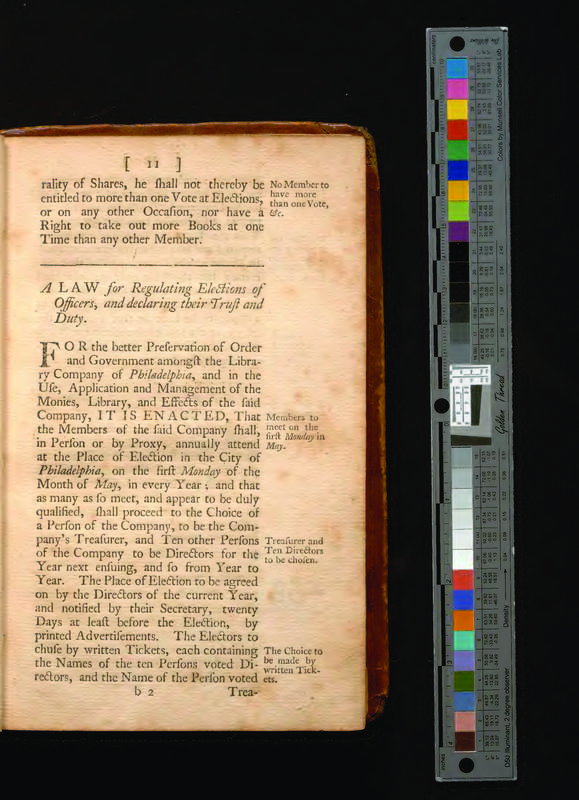 [ 11 ]
rality of Shares, he ſhall not thereby be
entitled to more than one Vote at Elections,
or on any other Occaſion, nor have a
Right to take out more Books at one
Time than any other Member.
No Member to
have more
than one Vote,
&c.
A LAW for Regulating Elections of
Officers, and declaring their Truſt and
Duty.
FOR the better Preſervation of Order
and Government amongſt the Libra-
ry Company of Philadelphia, and in the
Uſe, Application and Management of the
Monies, Library, and Effects of the ſaid
Company, IT IS ENACTED, That
the Members of the ſaid Company ſhall,
in Perſon or by Proxy, annually attend
at the Place of Election in the City of
Philadelphia, on the firſt Monday of the
Month of May, in every Year; and that
as many as ſo meet, and appear to be duly
qualified, ſhall proceed to the Choice of
a Perſon of the Company, to be the Com-
pany's Treaſurer, and Ten other Perſons
of the Company to be Directors for the
Year next enſuing, and ſo from Year to
Year. The Place of Election to be agreed
on by the Directors of the current Year,
and notified by their Secretary, twenty
Days at leaſt before the Election, by
printed Advertiſements. The Electors to
chuſe by written Tickets, each containing
the Names of the ten Perſons voted Di-
rectors, and the Name of the Perſon voted
Members to
meet on the
firſt Monday in
May.
Treaſurer and
Ten Directors
to be choſen.
The Choice to
be made by
written Tick-
ets.
b 2
Trea-
Colors by Munsell Color Services Lab
Golden Thread
Density
D50 Illuminant, 2 degree observer